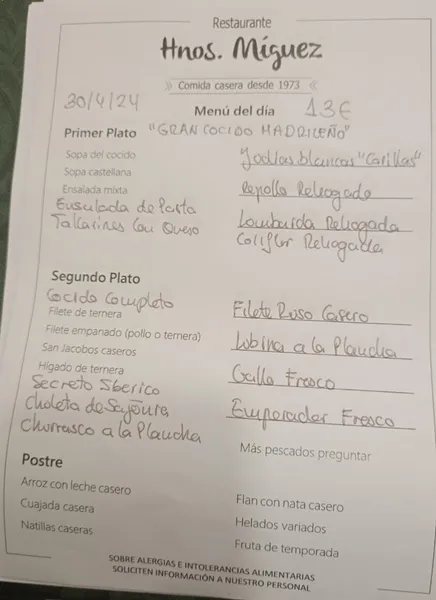 Restaurante
Hnos. Míguez
Comida casera desde 1973
30/4/24
Menú del día 13€
Primer Plato "GRAN COCIDO MADRILEÑO"
Sopa del cocido
Sopa castellana
Ensalada mixta
Ensalada de Pasta
Tallarines Con Queso
Judias blancas "Carillas"
Repollo Rehogado
Lombarda Rehogada
Coliflor Rehogada
Segundo Plato
Cocido Completo
Filete de ternera
Filete empanado (pollo o ternera)
San Jacobos caseros
Hígado de ternera
Secreto Iberico
Chuleta de Sajonia
Churrasco a la Plancha
Filete Ruso Casero
Lubina a la Plancha
Gallo Fresco
Emperador Fresco
Más pescados preguntar
Postre
Arroz con leche casero
Cuajada casera
Natillas caseras
Flan con nata casero
Helados variados
Fruta de temporada
SOBRE ALERGIAS E INTOLERANCIAS ALIMENTARIAS
SOLICITEN INFORMACIÓN A NUESTRO PERSONAL